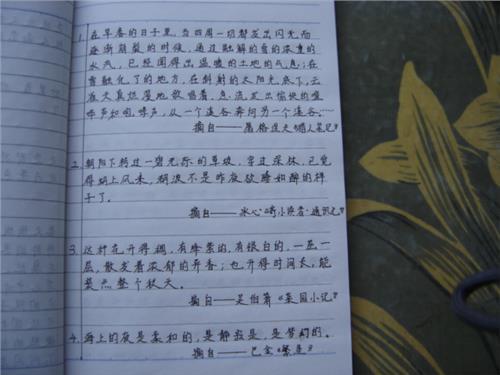 1. 在早春的日子里，当四周一切都发出闪光而
逐渐崩裂的时候，通过融解的雪的浓重的
水气，已经闻得出温暖的土地的气息；在
雪融化了的地方，在斜射的太阳光底下，云
雀天真烂漫地歌唱着，急流发出愉快的喧
哗声和咆哮声，从一个溪谷奔向另一个溪谷……
摘自——屠格涅夫《猎人笔记》
2. 朝阳下转过一碧无际的草坡，穿过深林，已觉
得湖上风来，湖波不是昨夜欲睡如醉的样
子了。
摘自——冰心《寄小读者·通讯七》
3. 这种花开得稠，有绛紫的，有银白的，一层一
层，散发着浓郁的异香；也开得时间长，能
装点整个秋天。
摘自——吴伯箫《菜园小记》
4. 海上的夜是柔和的，是静寂的，是梦幻的。
摘自——巴金《繁星》